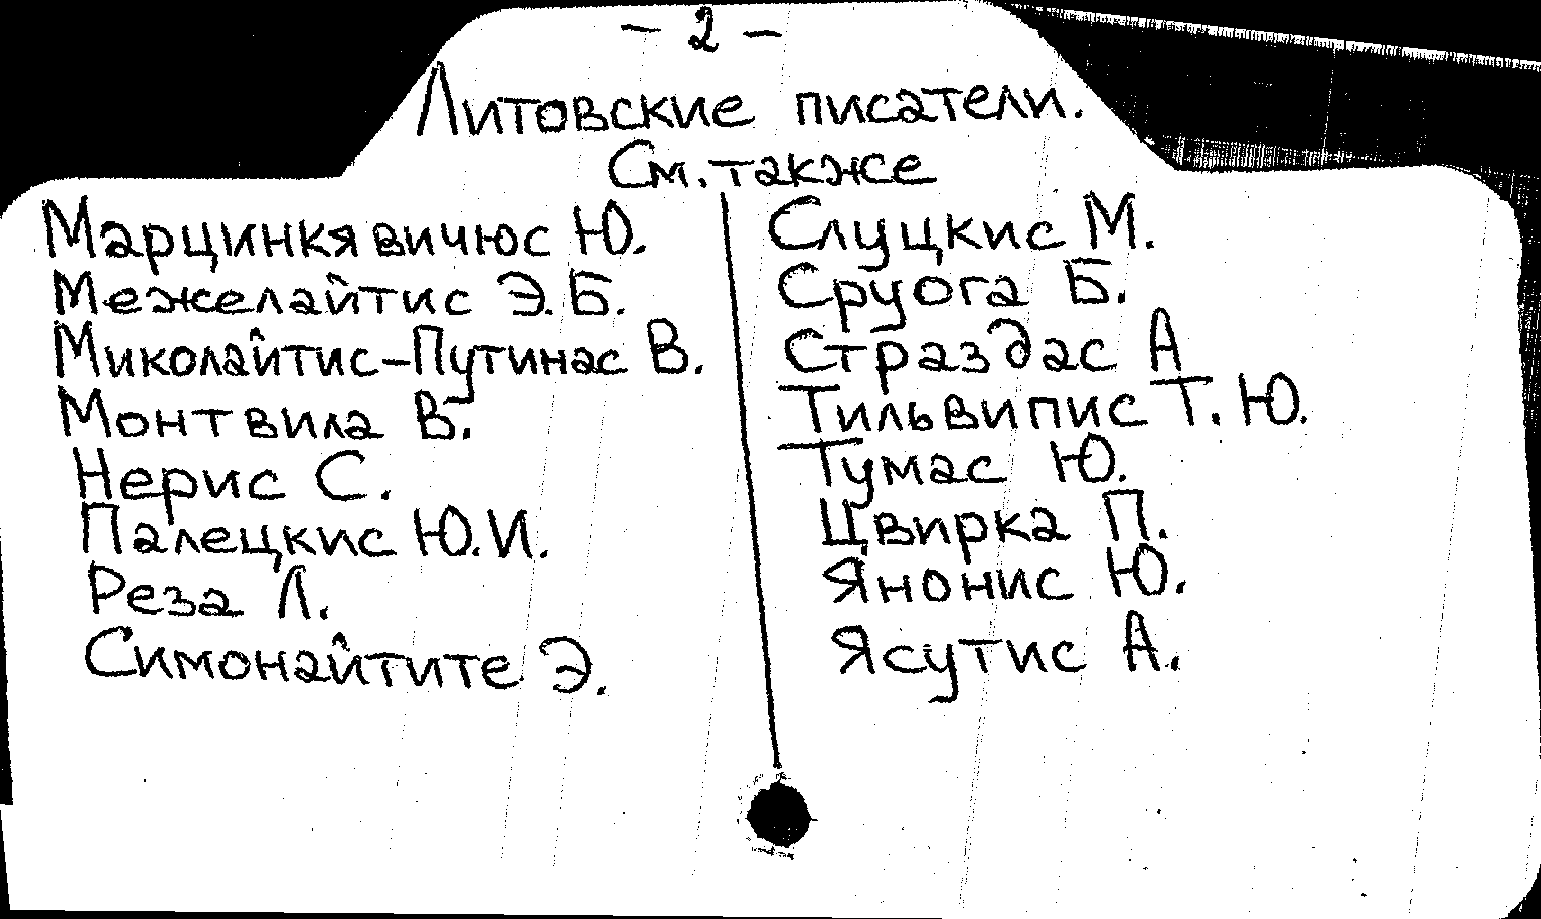 - 2 -
Литовские писатели.
См. также
Марцинкявичюс Ю.
Межелайтис Э.Б.
Миколайтис-Путинас В.
Монтвила В.
Нерис С.
Палецкис Ю.И.
Реза Л.
Симонайтите Э.
Слуцкис М.
Сруога Б.
Страздас А
Тильвипис Т.Ю.
Тумас Ю.
Цвирка П.
Янонис Ю.
Ясутис А.